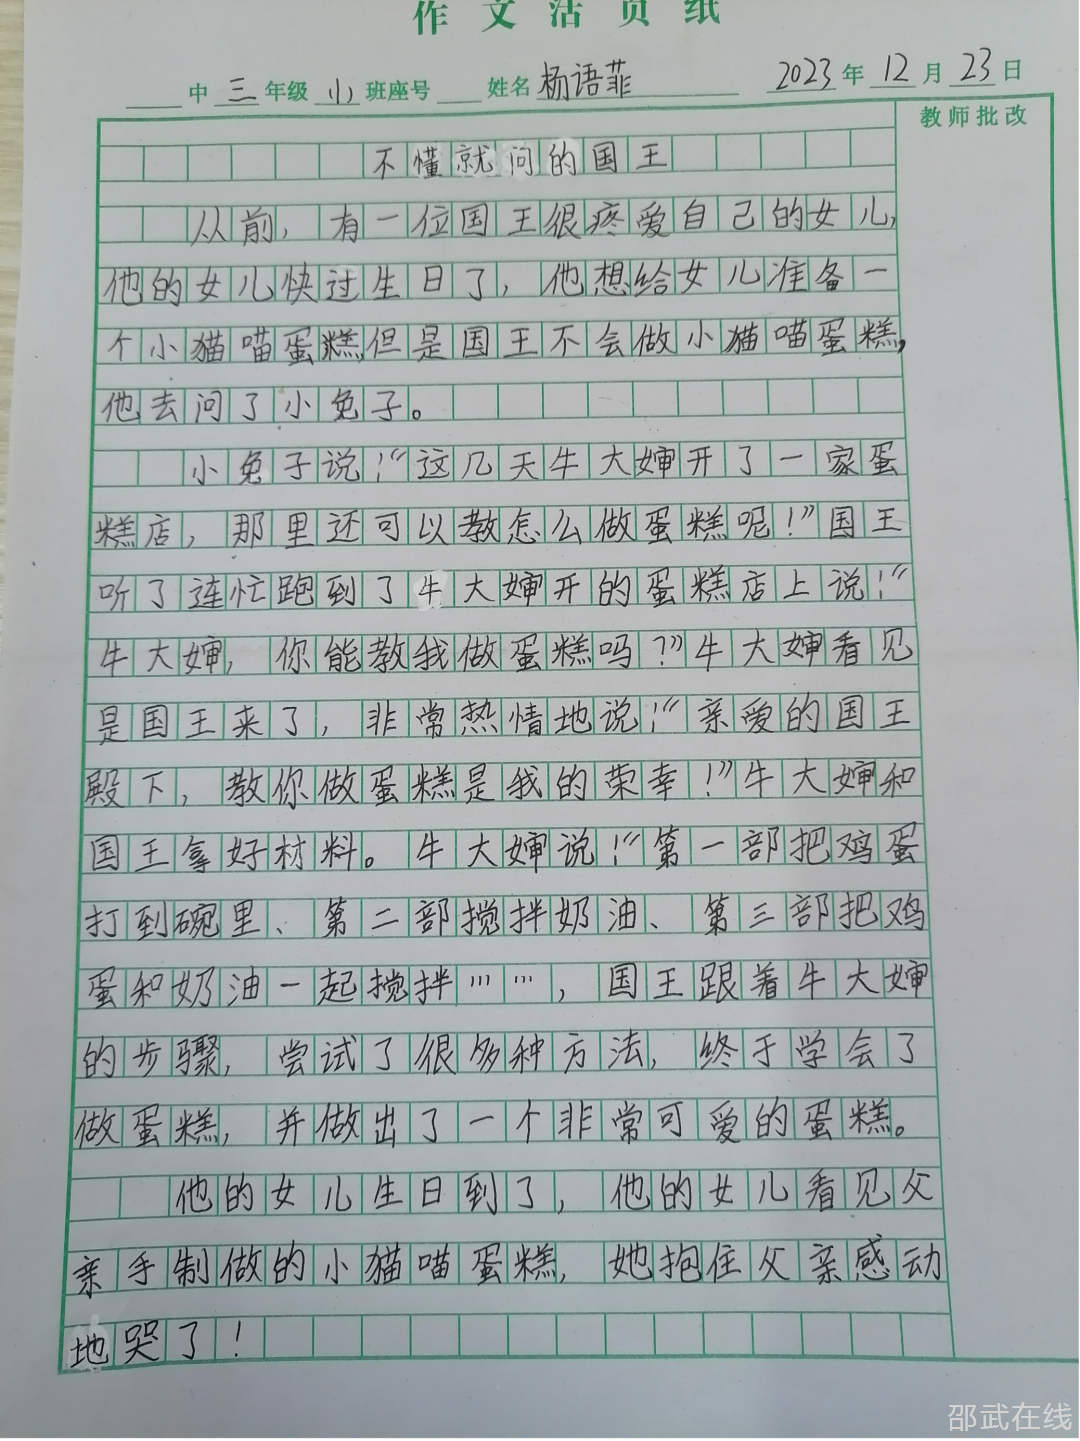 作文活页纸
中三年级小班座号 姓名杨语菲 2023年12月23日
教师批改
不懂就问的国王
从前，有一位国王很疼爱自己的女儿，
他的女儿快过生日了，他想给女儿准备一
个小猫喵蛋糕，但是国王不会做小猫喵蛋糕，
他去问了小兔子。
小兔子说：“这几天牛大婶开了一家蛋
糕店，那里还可以教怎么做蛋糕呢！”国王
听了连忙跑到了牛大婶开的蛋糕店上说：“
牛大婶，你能教我做蛋糕吗？”牛大婶看见
是国王来了，非常热情地说：“亲爱的国王
殿下，教你做蛋糕是我的荣幸！”牛大婶和
国王拿好材料。牛大婶说：“第一部把鸡蛋
打到碗里、第二部搅拌奶油、第三部把鸡
蛋和奶油一起搅拌……，国王跟着牛大婶
的步骤，尝试了很多种方法，终于学会了
做蛋糕，并做出了一个非常可爱的蛋糕。
他的女儿生日到了，他的女儿看见父
亲手制做的小猫喵蛋糕，她抱住父亲感动
地哭了！
邵武在线